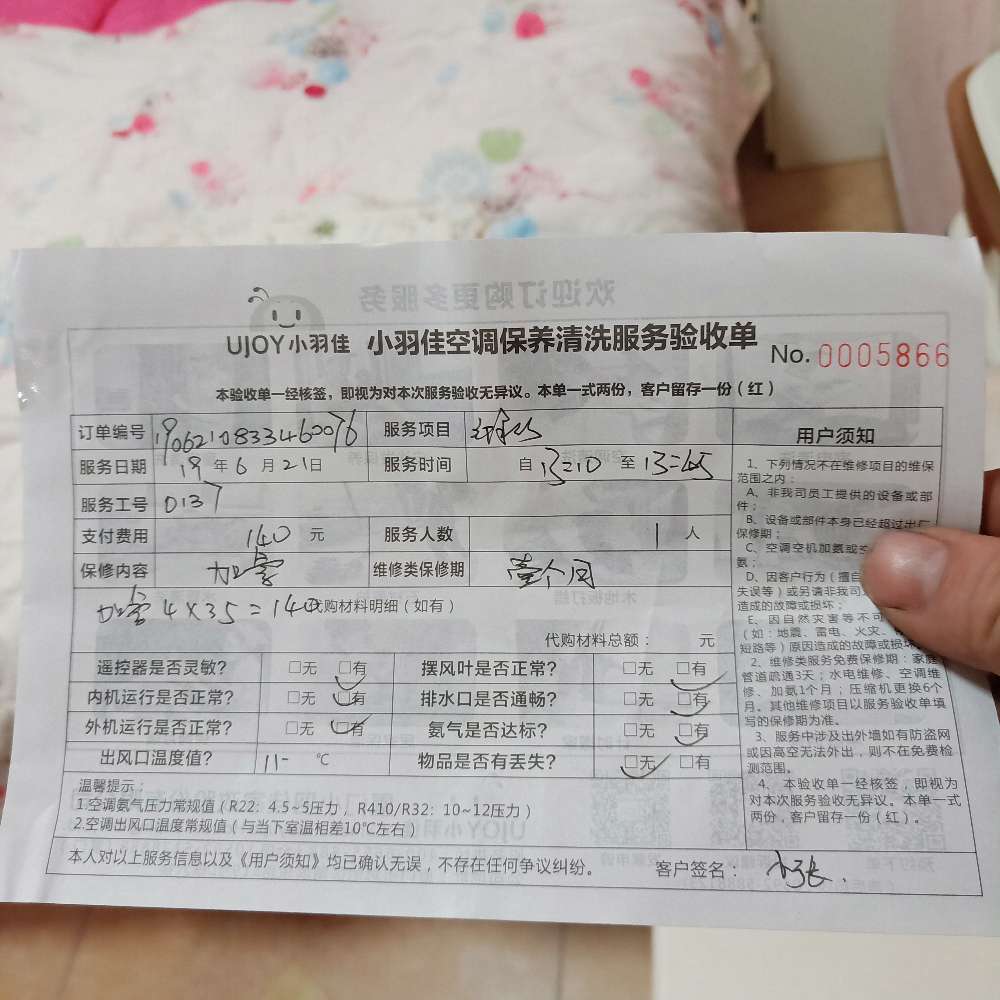 欢迎订购更多服务
UJOY小羽佳 小羽佳空调保养清洗服务验收单 No.0005866
本验收单一经核签，即视为对本次服务验收无异议。本单一式两份，客户留存一份（红）
订单编号 19062108334460076 服务项目
服务日期 19年6月21日 服务时间 自13=10 至13=45
服务工号 0137
支付费用 140 元 服务人数 1 人
保修内容 加雪 维修类保修期 壹个月
加雪4×35=140 代购材料明细（如有）
代购材料总额： 元
遥控器是否灵敏？ □无 □有 摆风叶是否正常？ □无 □有
内机运行是否正常？ □无 □有 排水口是否通畅？ □无 □有
外机运行是否正常？ □无 □有 氨气是否达标？ □无 □有
出风口温度值？ 11- ℃ 物品是否有丢失？ □无 □有
温馨提示：
1.空调氨气压力常规值（R22：4.5~5压力，R410/R32：10~12压力）
2.空调出风口温度常规值（与当下室温相差10℃左右）
用户须知
1、下列情况不在维修项目的维保
范围之内：
A、非我司员工提供的设备或部
件；
B、设备或部件本身已经超过出厂
保修期；
C、空调空机加氨或
氨；
D、因客户行为（擅自
失误等）或另请非我司
造成的故障或损坏；
E、因自然灾害等不可
（如：地震、雷电、火灾、
短路等）原因造成的故障或损坏
2、维修类服务免费保修期：家庭
管道疏通3天；水电维修、空调维
修、加氨1个月；压缩机更换6个
月。其他维修项目以服务验收单填
写的保修期为准。
3、服务中涉及出外墙如有防盗网
或因高空无法外出，则不在免费检
测范围。
4、本验收单一经核签，即视为
对本次服务验收无异议。本单一式
两份，客户留存一份（红）。
本人对以上服务信息以及《用户须知》均已确认无误，不存在任何争议纠纷。 客户签名：